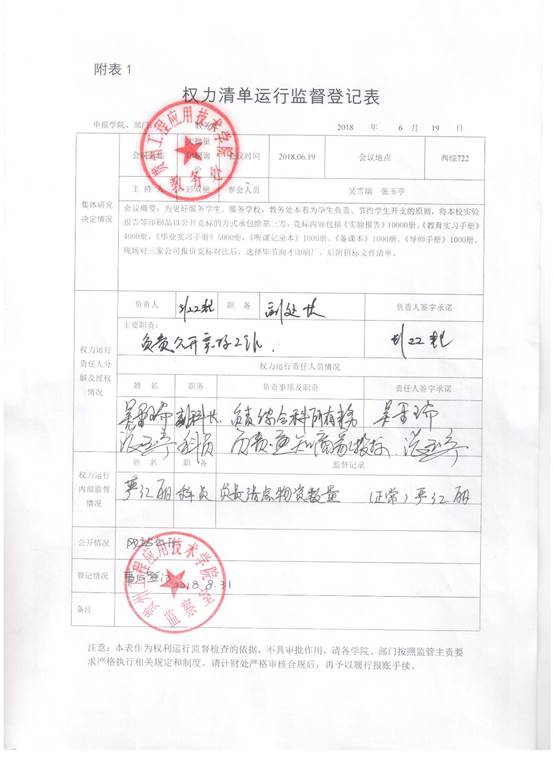 附表 1
权力清单运行监督登记表
申报学院、部门 教务处 2018 年 6 月 19 日
会议时间 2018.06.19 会议地点 西综722
主 持 人 参会人员 吴雪瑞 张玉亭
集体研究决定情况
会议概要：为更好服务学生、服务学校，教务处本着为学生负责、节约学生开支的原则，将本校实验
报告等印刷品以公开竞标的方式承包给第三方，竞标内容包括《实验报告》10000册、《教育实习手册》
4000册、《毕业实习手册》5000册、《听课记录本》1000册、《备课本》1000册、《导师手册》1000册，
现场对三家公司报价竞标对比后，选择毕节润才印刷厂，后附招标文件清单。
负责人 职 务 副处长 负责人签字承诺
主要职责：
负责公开竞标工作.
权力运行责任人分解及授权情况
权力运行责任人员情况
姓 名 职务 负责事项及职责 责任人签字承诺
吴雪瑞 副科长 负责综合科所有事务 吴雪瑞
张玉亭 科员 负责通知商家投标 张玉亭
权力运行内部监督情况
姓 名 职 务 监督记录
严江丽 科员 负责清点物资数量 （正常）严江丽
公开情况 网站公示
登记情况 2018.8.31
备注
注意：本表作为权利运行监督检查的依据，不具审批作用，请各学院、部门按照监管主责要
求严格执行相关规定和制度。请计财处严格审核合规后，再予以履行报账手续。
贵州工程应用技术学院
教务处
贵州工程应用技术学院
监察室